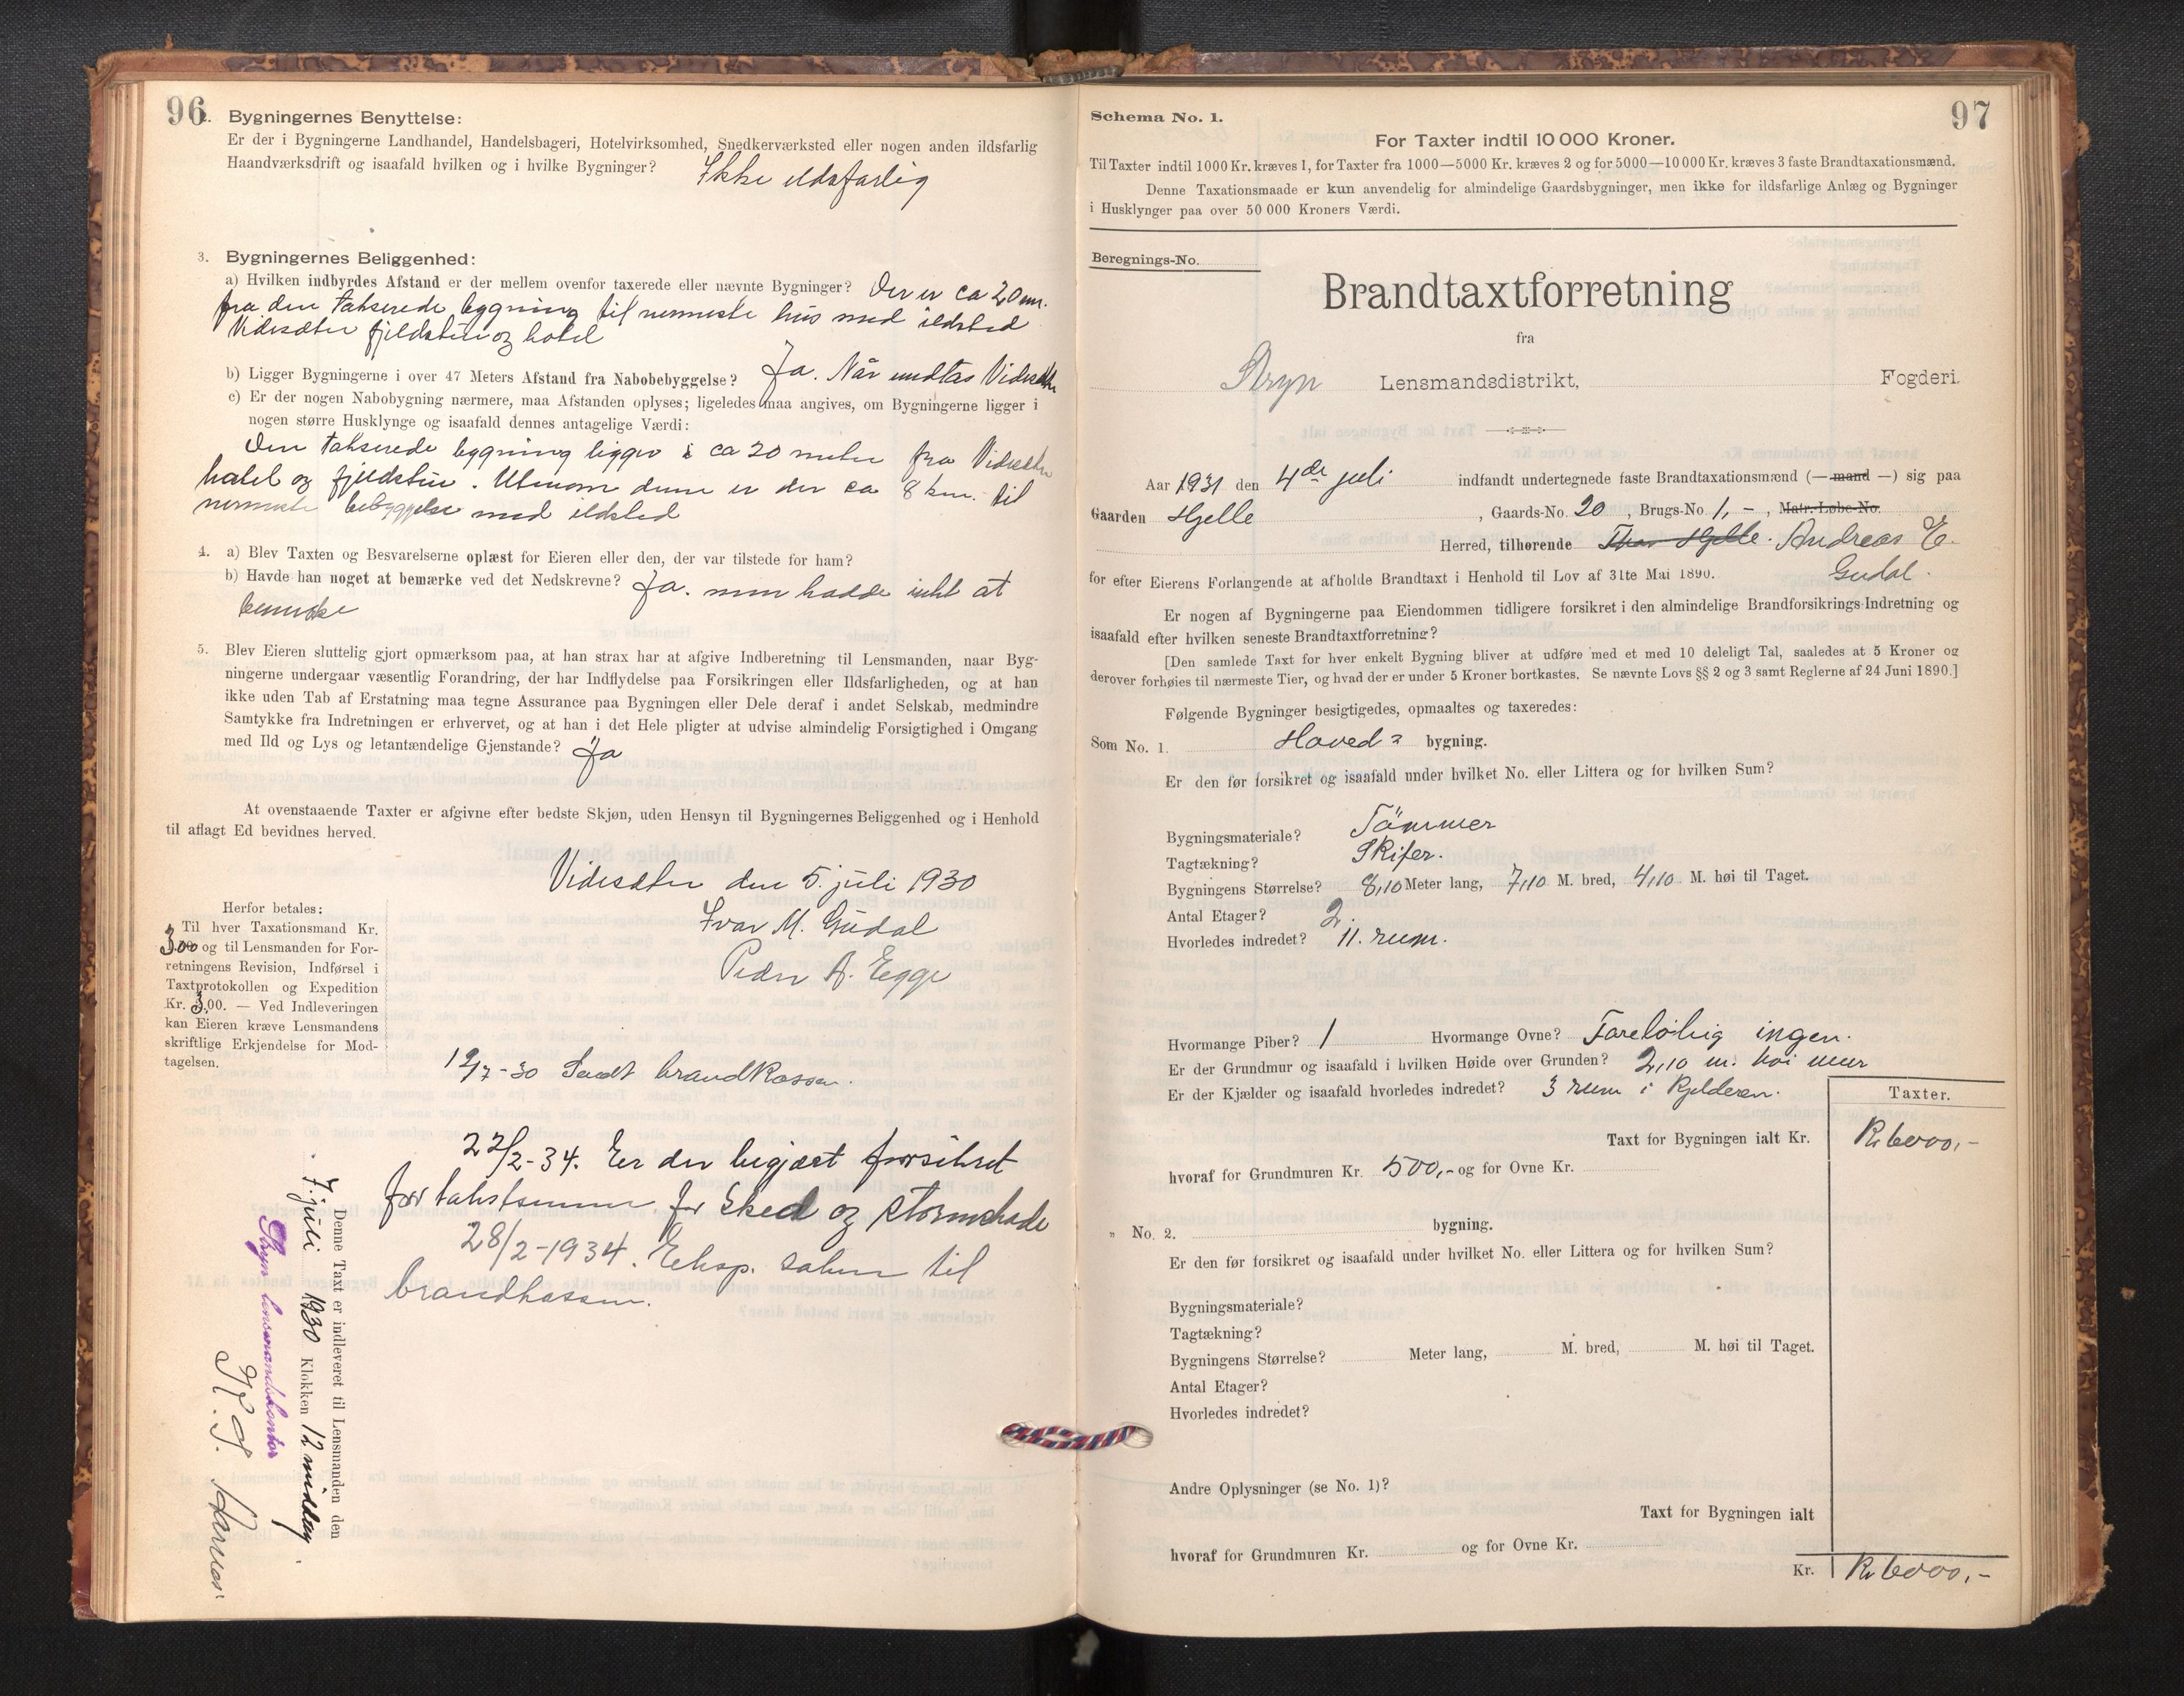 96
2. Bygningernes Benyttelse:
Er der i Bygningerne Landhandel, Handelsbageri, Hotelvirksomhed, Snedkerværksted eller nogen anden ildsfarlig
Haandværksdrift og isaafald hvilken og i hvilke Bygninger? Ikke ildsfarlig
3. Bygningernes Beliggenhed:
a) Hvilken indbyrdes Afstand er der mellem ovenfor taxerede eller nævnte Bygninger? Der er ca 20 m.
fra den takserede bygning til nermeste hus med ildsted
Videsæter fjeldstue og hotel
b) Ligger Bygningerne i over 47 Meters Afstand fra Nabobebyggelse? Ja. Når undtas Videsæter
c) Er der nogen Nabobygning nærmere, maa Afstanden oplyses; ligeledes maa angives, om Bygningerne ligger i
nogen større Husklynge og isaafald dennes antagelige Værdi:
Den takserede bygning ligger i ca 20 meter fra Videsæter
hotel og fjeldstue. Utenom denne er der ca 8 km. til
nermeste bebyggelse med ildsted
4. a) Blev Taxten og Besvarelserne oplæst for Eieren eller den, der var tilstede for ham?
b) Havde han noget at bemærke ved det Nedskrevne? Ja. men hadde intet at
bemerke
5. Blev Eieren sluttelig gjort opmærksom paa, at han strax har at afgive Indberetning til Lensmanden, naar Byg-
ningerne undergaar væsentlig Forandring, der har Indflydelse paa Forsikringen eller Ildsfarligheden, og at han
ikke uden Tab af Erstatning maa tegne Assurance paa Bygningen eller Dele deraf i andet Selskab, medmindre
Samtykke fra Indretningen er erhvervet, og at han i det Hele pligter at udvise almindelig Forsigtighed i Omgang
med Ild og Lys og letantændelige Gjenstande? Ja
At ovenstaaende Taxter er afgivne efter bedste Skjøn, uden Hensyn til Bygningernes Beliggenhed og i Henhold
til aflagt Ed bevidnes herved.
Videsæter den 5. juli 1930
Ivar M. Gudal
Peder A. Egge
Herfor betales:
Til hver Taxationsmand Kr.
3,00 og til Lensmanden for For-
retningens Revision, Indførsel i
Taxtprotokollen og Expedition
Kr. 3,00. — Ved Indleveringen
kan Eieren kræve Lensmandens
skriftlige Erkjendelse for Mod-
tagelsen.
12/7-30 Sendt brandkassen.
22/2-34. Er der begjært forsikret
for takstsummen for sked og stormskade
28/2-1934. Eksp. saken til
brandkassen.
Denne Taxt er indleveret til Lensmanden den
7. juli 1930 Klokken 12 middag.
Stryn lensmandskontor
97
Schema No. 1.
For Taxter indtil 10 000 Kroner.
Til Taxter indtil 1000 Kr. kræves 1, for Taxter fra 1000—5000 Kr. kræves 2 og for 5000—10 000 Kr. kræves 3 faste Brandtaxationsmænd.
Denne Taxationsmaade er kun anvendelig for almindelige Gaardsbygninger, men ikke for ildsfarlige Anlæg og Bygninger
i Husklynger paa over 50 000 Kroners Værdi.
Beregnings-No.
Brandtaxtforretning
fra
Stryn Lensmandsdistrikt, Fogderi.
Aar 1931 den 4de juli indfandt undertegnede faste Brandtaxationsmænd (— mand —) sig paa
Gaarden Hjelle, Gaards-No. 20, Brugs-No. 1, -, Matr.-Løbe-No.
Herred, tilhørende Thor Hjelle. Andreas E.
Gudal.
for efter Eierens Forlangende at afholde Brandtaxt i Henhold til Lov af 31te Mai 1890.
Er nogen af Bygningerne paa Eiendommen tidligere forsikret i den almindelige Brandforsikrings-Indretning og
isaafald efter hvilken seneste Brandtaxtforretning?
[Den samlede Taxt for hver enkelt Bygning bliver at udføre med et med 10 deleligt Tal, saaledes at 5 Kroner og
derover forhøies til nærmeste Tier, og hvad der er under 5 Kroner bortkastes. Se nævnte Lovs §§ 2 og 3 samt Reglerne af 24 Juni 1890.]
Følgende Bygninger besigtigedes, opmaaltes og taxeredes:
Som No. 1. Hoved= bygning.
Er den før forsikret og isaafald under hvilket No. eller Littera og for hvilken Sum?
Bygningsmateriale? Tömmer
Tagtækning? Skifer.
Bygningens Størrelse? 8,10 Meter lang, 7,10 M. bred, 4,10 M. høi til Taget.
Antal Etager? 2.
Hvorledes indredet? 11. rum.
Hvormange Piber? 1 Hvormange Ovne? Foreløbig ingen.
Er der Grundmur og isaafald i hvilken Høide over Grunden? 2,10 m. høi mur
Er der Kjælder og isaafald hvorledes indredet? 3 rum i Kjelderen.
Taxter.
Taxt for Bygningen ialt Kr. Kr 6000,-
hvoraf for Grundmuren Kr. 500,- og for Ovne Kr.
„ No. 2. bygning.
Er den før forsikret og isaafald under hvilket No. eller Littera og for hvilken Sum?
Bygningsmateriale?
Tagtækning?
Bygningens Størrelse? Meter lang, M. bred, M. høi til Taget.
Antal Etager?
Hvorledes indredet?
Andre Oplysninger (se No. 1)?
Taxt for Bygningen ialt
hvoraf for Grundmuren Kr. og for Ovne Kr.
Kr. Kr 6000,-